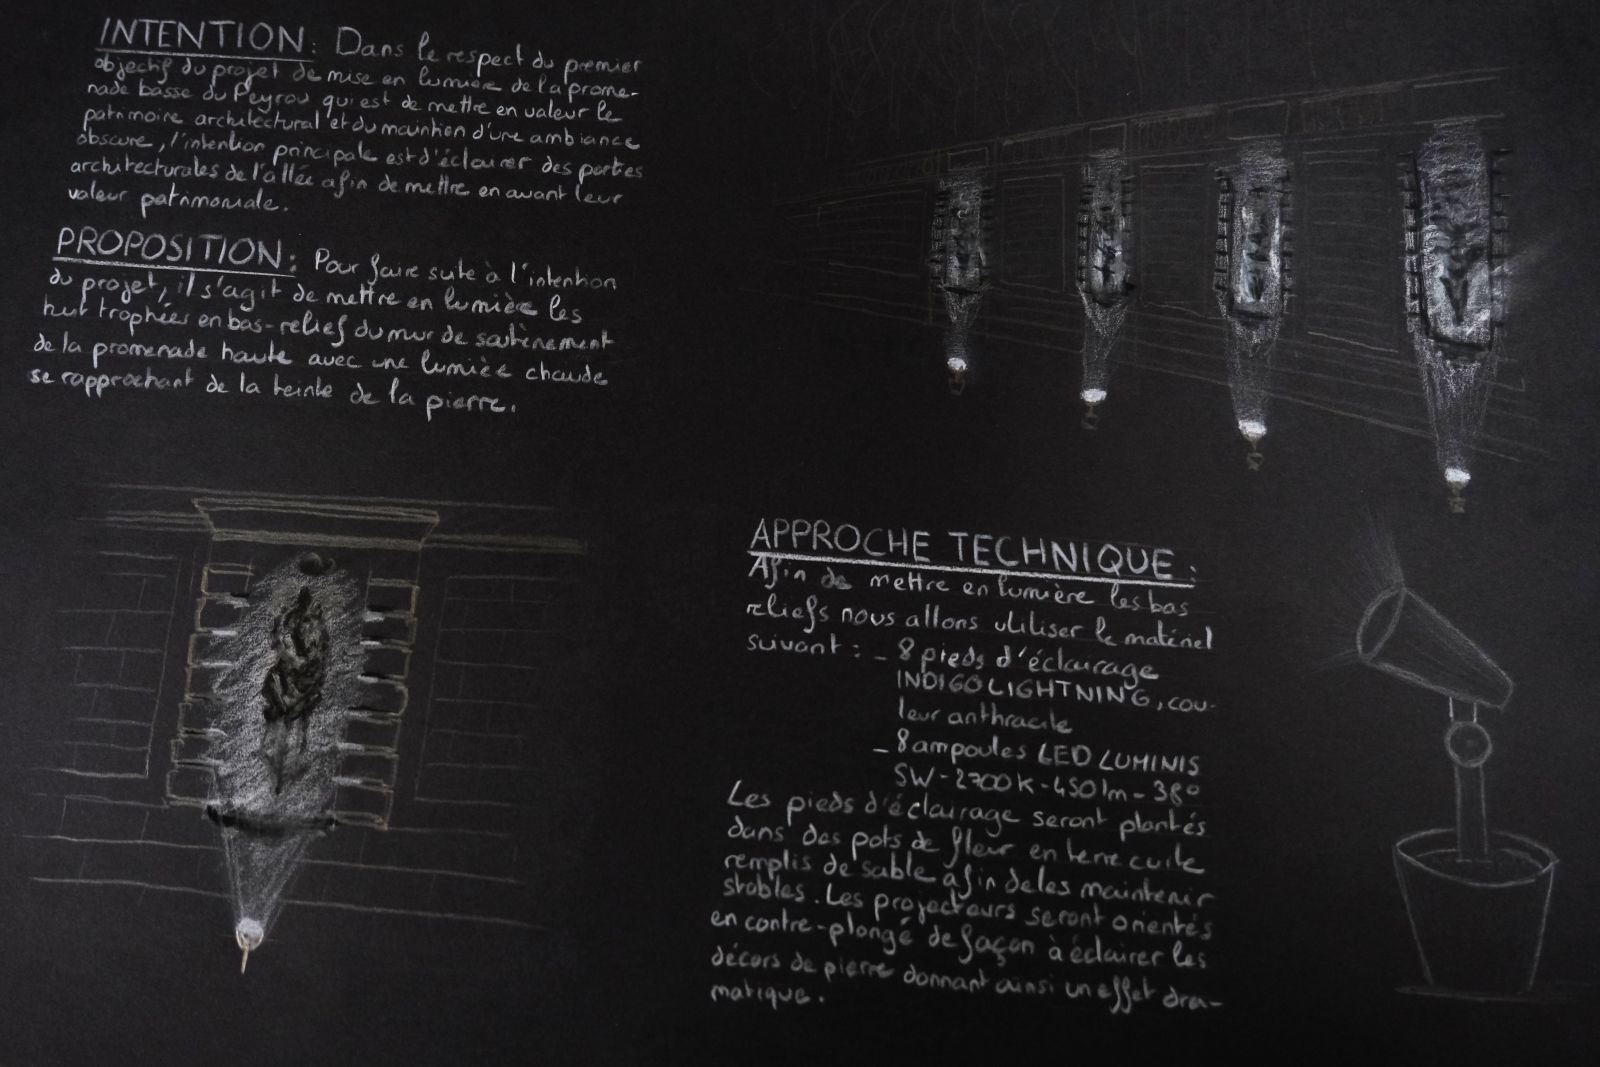 INTENTION : Dans le respect du premier
objectif du projet de mise en lumière de la prome-
nade basse du Peyrou qui est de mettre en valeur le
patrimoine architectural et du maintien d'une ambiance
obscure, l'intention principale est d'éclairer des parties
architecturales de l'allée afin de mettre en avant leur
valeur patrimoniale.
PROPOSITION : Pour faire suite à l'intention
du projet, il s'agit de mettre en lumière les
huit trophées en bas-relief du mur de soutènement
de la promenade haute avec une lumière chaude
se rapprochant de la teinte de la pierre.
APPROCHE TECHNIQUE :
Afin de mettre en lumière les bas
reliefs nous allons utiliser le matériel
suivant : - 8 pieds d'éclairage
INDIGO LIGHTNING, cou-
leur anthracite
- 8 ampoules LED LUMINIS
SW - 2700 K - 450 lm - 38°
Les pieds d'éclairage seront plantés
dans des pots de fleur en terre cuite
remplis de sable afin de les maintenir
stables. Les projecteurs seront orientés
en contre-plongé de façon à éclairer les
décors de pierre donnant ainsi un effet dra-
matique.